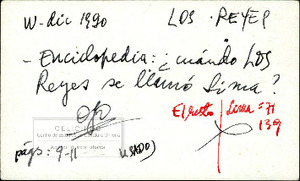 W-dic 1990 LOS REYES
- Enciclopedia: ¿cuándo LOS
Reyes se llamó Lima?
El resto Lima = 71
139
págs: 9-11 USADO